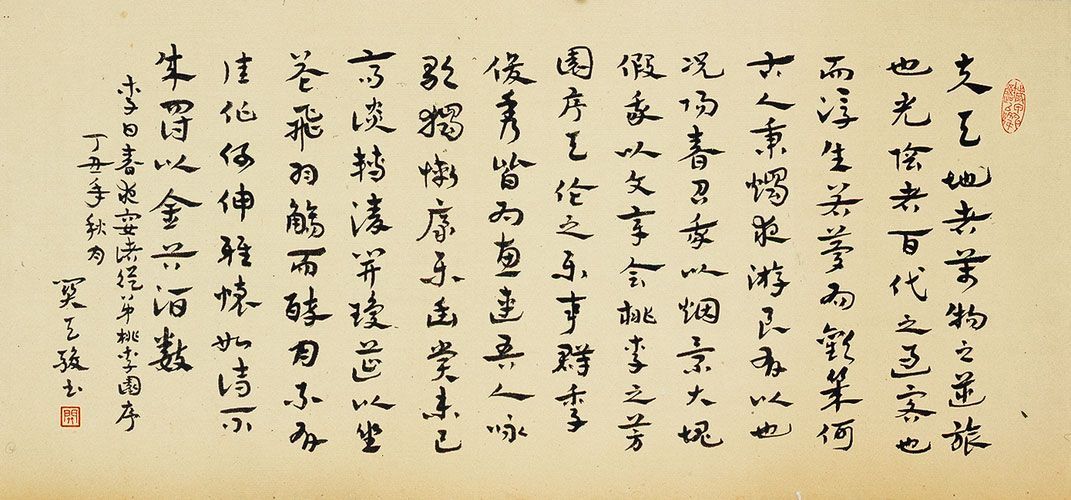 夫天地者萬物之逆旅
也光陰者百代之過客也
而浮生若夢為歡幾何
古人秉燭夜游良有以也
況陽春召我以烟景大塊
假我以文章会桃李之芳
園序天伦之樂事群季
俊秀皆為惠連吾人咏
歌獨慚康樂幽賞未已
高談轉清開瓊筵以坐
花飛羽觴而醉月不有
佳作何伸雅懷如詩不
成罰以金谷酒數
李白春夜宴諸從弟桃李園序
丁丑年秋月
書